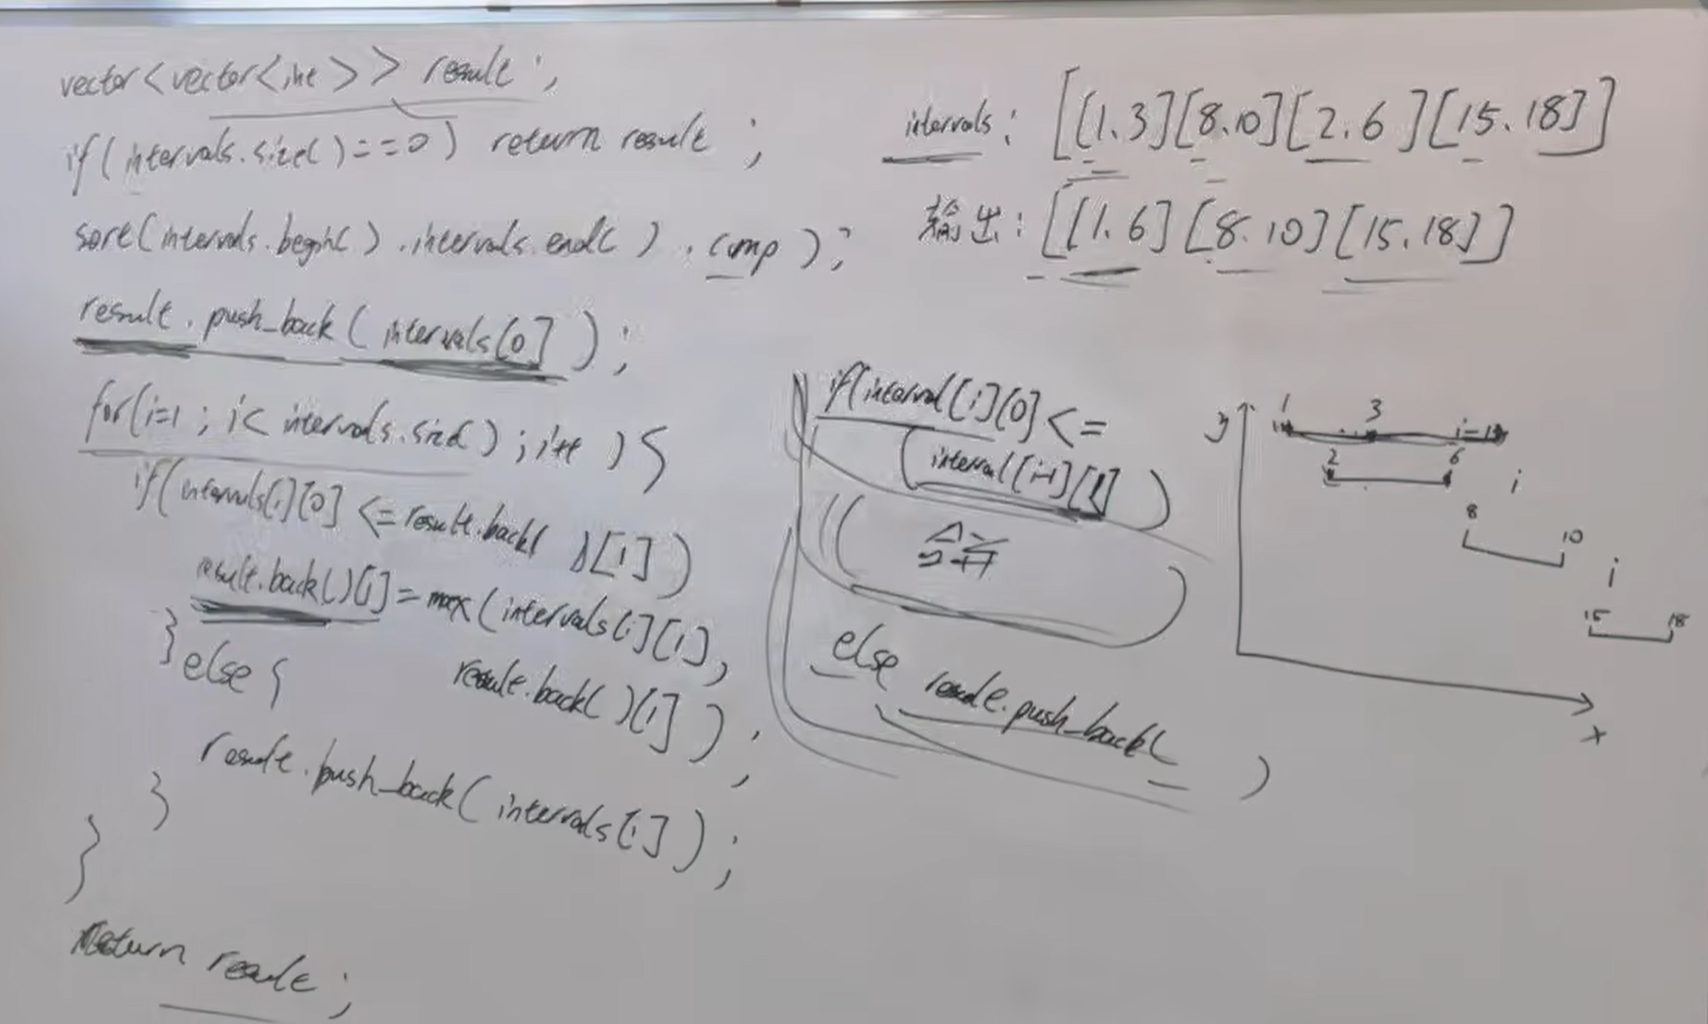 vector<vector<int>> result;
if(intervals.size()==0) return result;
sort(intervals.begin().intervals.end().cmp);
result.push_back(intervals[0]);
for(i=1; i< intervals.size(); i++){
if(intervals[i][0] <=result.back()[1])
result.back()[1]=max(intervals[i][1],
result.back()[1]);
}else{
result.push_back(intervals[i]);
}
}
return result;
intervals: [[1.3][8.10][2.6][15.18]]
输出: [[1.6][8.10][15.18]]
if(interval[i][0]<=
(interval[i-1][1])
(合并)
else result.push_back()
y
1 3
2 6
i
8 10
i
15 18
x